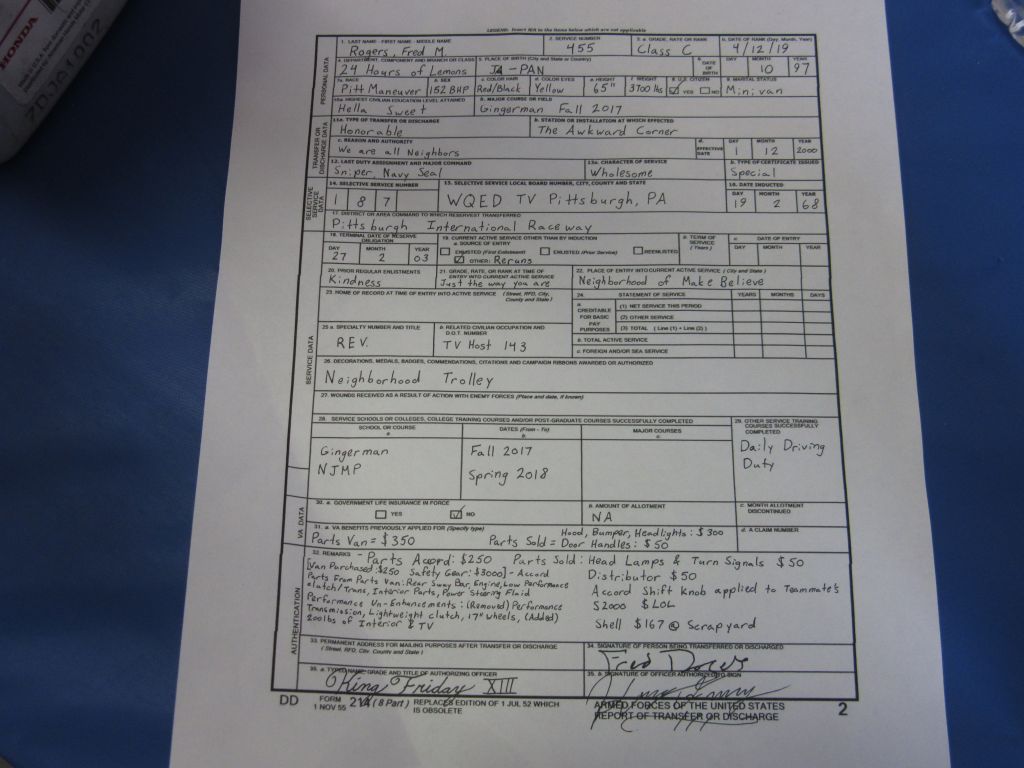 HONDA
LEGEND: Insert N/A to the items below which are not applicable
1. LAST NAME - FIRST NAME - MIDDLE NAME
Rogers, Fred M.
2. SERVICE NUMBER
455
3. a. GRADE, RATE OR RANK
Class C
b. DATE OF RANK (Day, Month, Year)
4/12/19
PERSONAL DATA
4. DEPARTMENT, COMPONENT AND BRANCH OR CLASS
24 Hours of Lemons
5. PLACE OF BIRTH (City and State or Country)
JA-PAN
6. DATE OF BIRTH
DAY MONTH YEAR
10 97
7a. RACE
Pitt Maneuver
b. SEX
152 BHP
c. COLOR HAIR
Red/Black
d. COLOR EYES
Yellow
e. HEIGHT
65"
f. WEIGHT
3700 lbs
8. U.S. CITIZEN
YES NO
9. MARITAL STATUS
Minivan
10a. HIGHEST CIVILIAN EDUCATION LEVEL ATTAINED
Hella Sweet
b. MAJOR COURSE OR FIELD
Gingerman Fall 2017
TRANSFER OR DISCHARGE DATA
11a. TYPE OF TRANSFER OR DISCHARGE
Honorable
b. STATION OR INSTALLATION AT WHICH EFFECTED
The Awkward Corner
c. REASON AND AUTHORITY
We are all Neighbors
d. EFFECTIVE DATE
DAY MONTH YEAR
1 12 2000
12. LAST DUTY ASSIGNMENT AND MAJOR COMMAND
Sniper, Navy Seal
13a. CHARACTER OF SERVICE
Wholesome
b. TYPE OF CERTIFICATE ISSUED
Special
SELECTIVE SERVICE DATA
14. SELECTIVE SERVICE NUMBER
1 8 7
15. SELECTIVE SERVICE LOCAL BOARD NUMBER, CITY, COUNTY AND STATE
WQED TV Pittsburgh, PA
16. DATE INDUCTED
DAY MONTH YEAR
19 2 68
17. DISTRICT OR AREA COMMAND TO WHICH RESERVIST TRANSFERRED
Pittsburgh International Raceway
SERVICE DATA
18. TERMINAL DATE OF RESERVE OBLIGATION
DAY MONTH YEAR
27 2 03
19. CURRENT ACTIVE SERVICE OTHER THAN BY INDUCTION
a. SOURCE OF ENTRY
ENLISTED (First Enlistment) ENLISTED (Prior Service) REENLISTED
OTHER: Reruns
b. TERM OF SERVICE (Years)
c. DATE OF ENTRY
DAY MONTH YEAR
20. PRIOR REGULAR ENLISTMENTS
Kindness
21. GRADE, RATE, OR RANK AT TIME OF ENTRY INTO CURRENT ACTIVE SERVICE
Just the way you are
22. PLACE OF ENTRY INTO CURRENT ACTIVE SERVICE (City and State)
Neighborhood of Make Believe
23. HOME OF RECORD AT TIME OF ENTRY INTO ACTIVE SERVICE (Street, RFD, City, County and State)
24. STATEMENT OF SERVICE YEARS MONTHS DAYS
a. CREDITABLE FOR BASIC PAY PURPOSES
(1) NET SERVICE THIS PERIOD
(2) OTHER SERVICE
(3) TOTAL (Line (1) + Line (2))
b. TOTAL ACTIVE SERVICE
c. FOREIGN AND/OR SEA SERVICE
25 a. SPECIALTY NUMBER AND TITLE
REV.
b. RELATED CIVILIAN OCCUPATION AND D.O.T. NUMBER
TV Host 143
26. DECORATIONS, MEDALS, BADGES, COMMENDATIONS, CITATIONS AND CAMPAIGN RIBBONS AWARDED OR AUTHORIZED
Neighborhood Trolley
27. WOUNDS RECEIVED AS A RESULT OF ACTION WITH ENEMY FORCES (Place and date, if known)
28. SERVICE SCHOOLS OR COLLEGES, COLLEGE TRAINING COURSES AND/OR POST-GRADUATE COURSES SUCCESSFULLY COMPLETED
SCHOOL OR COURSE
a.
DATES (From - To)
b.
MAJOR COURSES
c.
Gingerman Fall 2017
NJMP Spring 2018
29. OTHER SERVICE TRAINING COURSES SUCCESSFULLY COMPLETED
Daily Driving
Duty
VA DATA
30. a. GOVERNMENT LIFE INSURANCE IN FORCE
YES NO
b. AMOUNT OF ALLOTMENT
NA
c. MONTH ALLOTMENT DISCONTINUED
31. a. VA BENEFITS PREVIOUSLY APPLIED FOR (Specify type)
Parts Van = $350
Parts Sold = Hood, Bumper, Headlights: $300
Door Handles: $50
d. A CLAIM NUMBER
AUTHENTICATION
32. REMARKS
- Parts Accord: $250
[Van Purchased: $250 Safety Gear: $3000] - Accord
Parts From Parts Van: Rear Sway Bar, Engine, Low Performance
clutch/Trans, Interior Parts, Power Steering Fluid
Performance Un-Enhancements: (Removed) Performance
Transmission, Lightweight clutch, 17" wheels, (Added)
200lbs of Interior & TV
Parts Sold: Head Lamps & Turn Signals $50
Distributor $50
Accord Shift Knob applied to Teammate's
S2000 $LOL
Shell $167 @ Scrapyard
33. PERMANENT ADDRESS FOR MAILING PURPOSES AFTER TRANSFER OR DISCHARGE
(Street, RFD, City, County and State)
34. SIGNATURE OF PERSON BEING TRANSFERRED OR DISCHARGED
Fred
35. a. TYPED NAME, GRADE AND TITLE OF AUTHORIZING OFFICER
King Friday XIII
35. b. SIGNATURE OF OFFICER AUTHORIZED TO SIGN
DD FORM 1 NOV 55 (8 Part) REPLACES EDITION OF 1 JUL 52 WHICH IS OBSOLETE
ARMED FORCES OF THE UNITED STATES
REPORT OF TRANSFER OR DISCHARGE
2